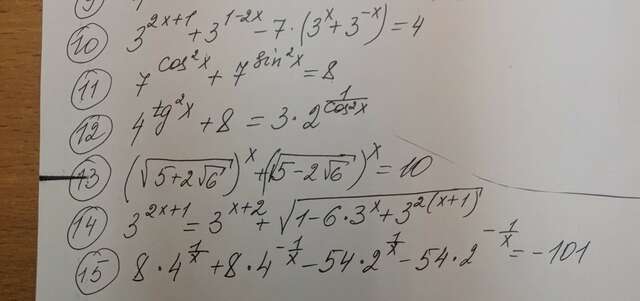 9
10 3^{2x+1} + 3^{1-2x} - 7·(3^x + 3^{-x}) = 4
11 7^{cos²x} + 7^{sin²x} = 8
12 4^{tg²x} + 8 = 3·2^{1/cos²x}
13 (√(5+2√6))^x + (√(5-2√6))^x = 10
14 3^{2x+1} = 3^{x+2} + √(1-6·3^x+3^{2(x+1)})
15 8·4^{1/x} + 8·4^{-1/x} - 54·2^{1/x} - 54·2^{-1/x} = -101